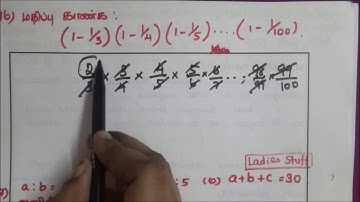 16) மதிப்பு காண்க :
(1 - 1/3) (1 - 1/4) (1 - 1/5) .... (1 - 1/100).
2/3 × 3/4 × 4/5 × 5/6 × 6/7 ...; 98/99 × 99/100
Ladies Stuff
a : b = : 5 (b) a + b + c = 30